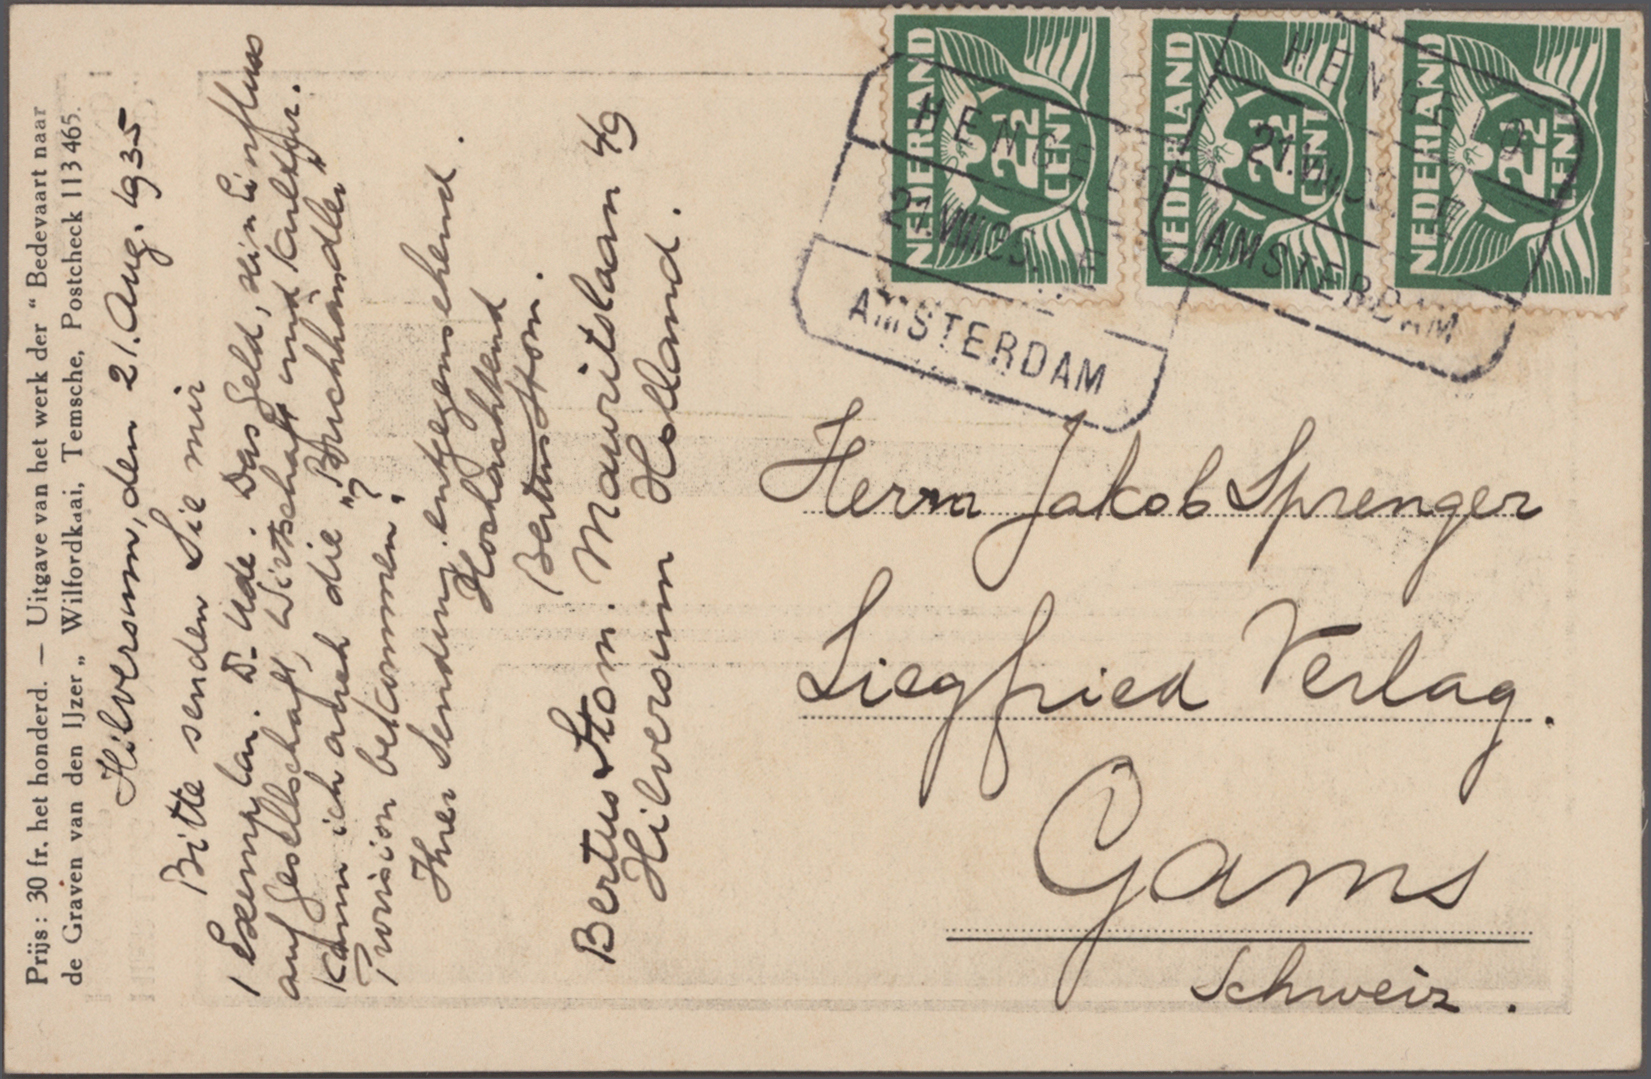 Prijs : 30 fr. het honderd. — Uitgave van het werk der " Bedevaart naar
de Graven van den IJzer „ Wilfordkaai, Temsche, Postcheck 113465.
Hilversum, den 21. Aug. 1935
Bitte senden Sie mir
1 Exemplar. Dr. Ude. Das Geld, sein Einfluss
auf Gesellschaft, Wirtschaft und Kultur.
Kann ich auch die „Buchhändler"
Provision bekommen?
Ihrer Sendung entgegensehend
Hochachtend
Bertus Stom.
Bertus Stom. Mauritslaan 49
Hilversum Holland.
NEDERLAND 2½ CENT
NEDERLAND 2½ CENT
NEDERLAND 2½ CENT
HENGELO
21.VIII.35.
AMSTERDAM
HENGELO
21.VIII.35.
AMSTERDAM
Herrn Jakob Sprenger
Siegfried Verlag.
Gams
Schweiz.